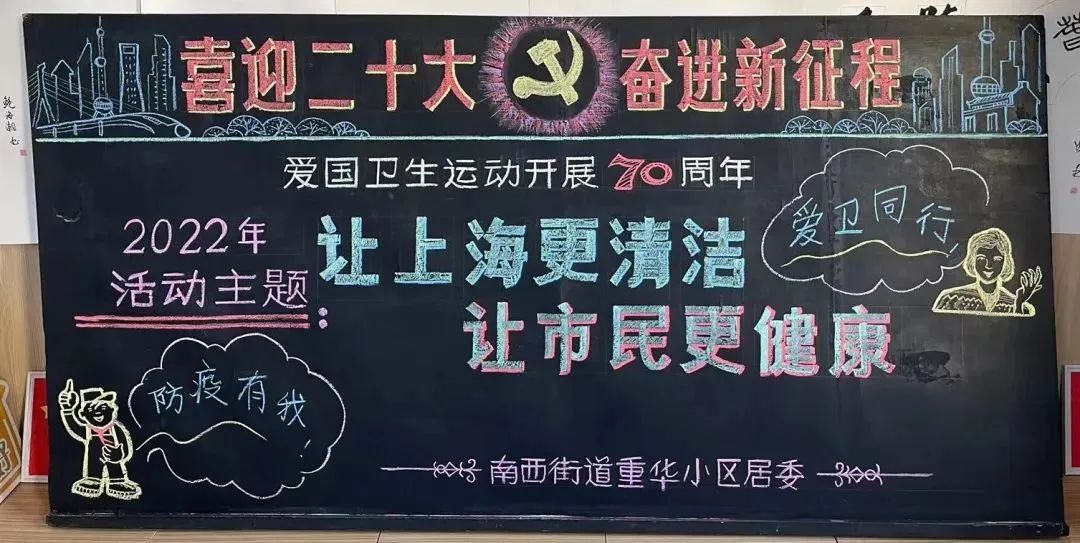 喜迎二十大 奋进新征程
爱国卫生运动开展70周年
2022年
活动主题：
让上海更清洁
让市民更健康
爱卫同行
防疫有我
南西街道重华小区居委